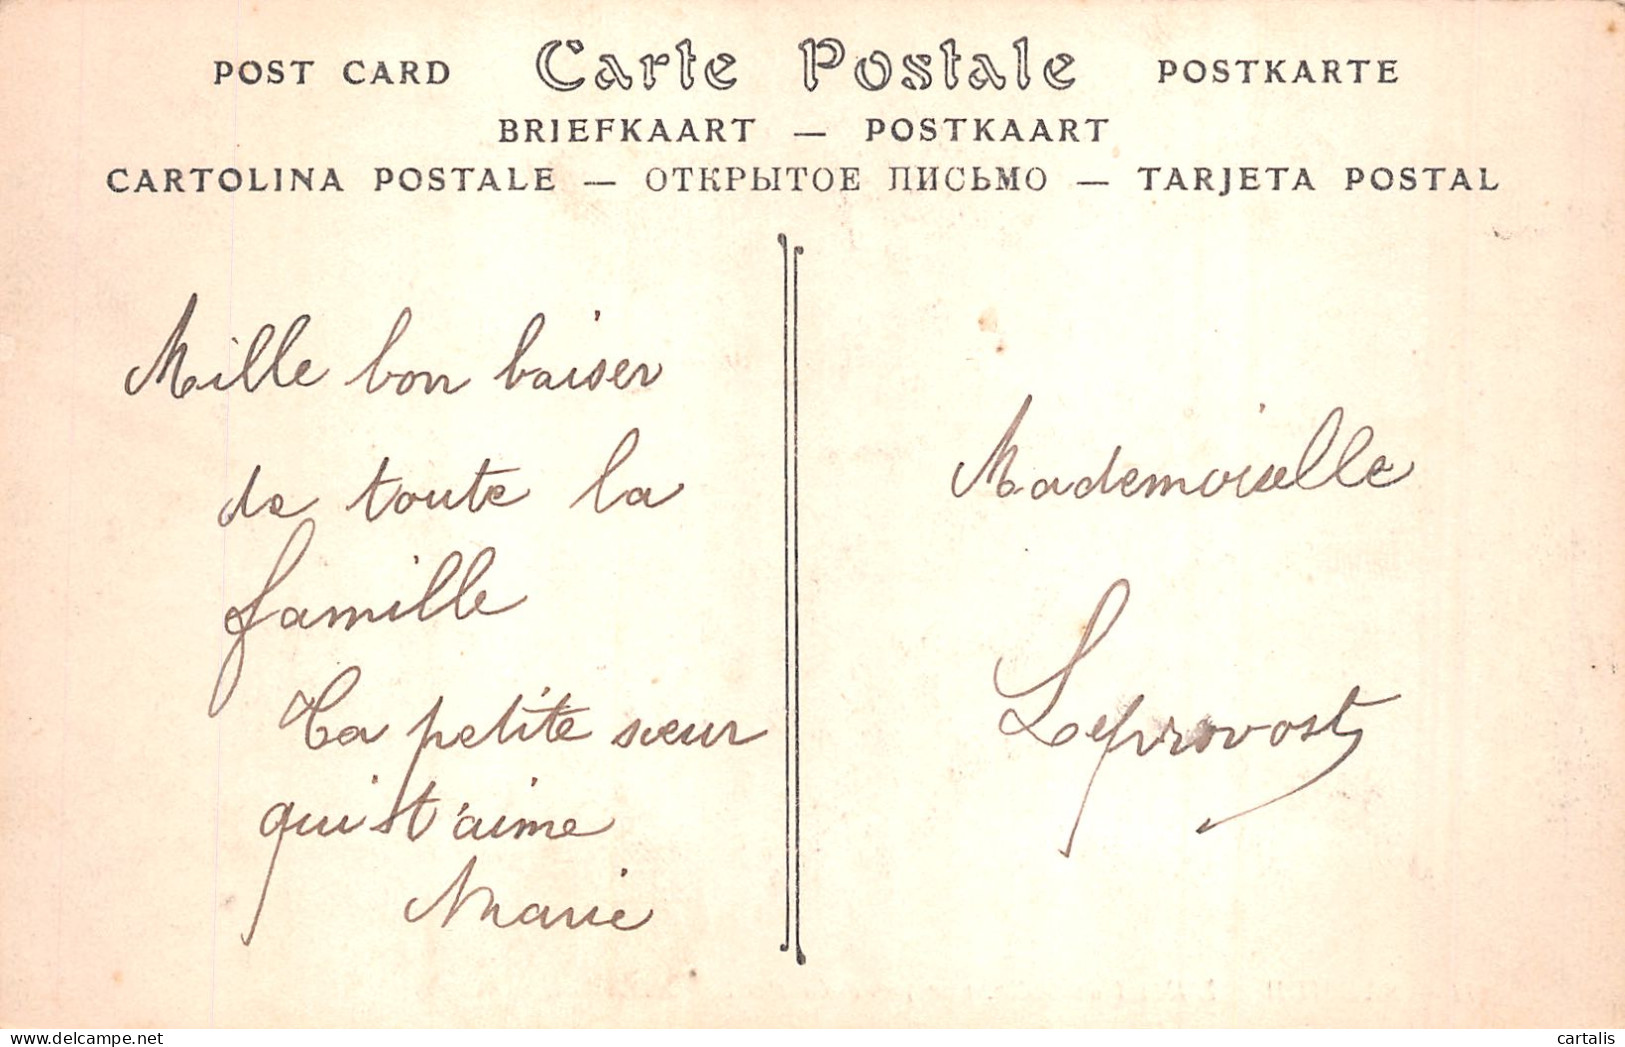 POST CARD Carte Postale POSTKARTE
BRIEFKAART — POSTKAART
CARTOLINA POSTALE — ОТКРЫТОЕ ПИСЬМО — TARJETA POSTAL
Mille bon baiser
de toute la
famille
Ta petite sœur
qui t'aime
Marie
Mademoiselle
Leprovost
cartalis